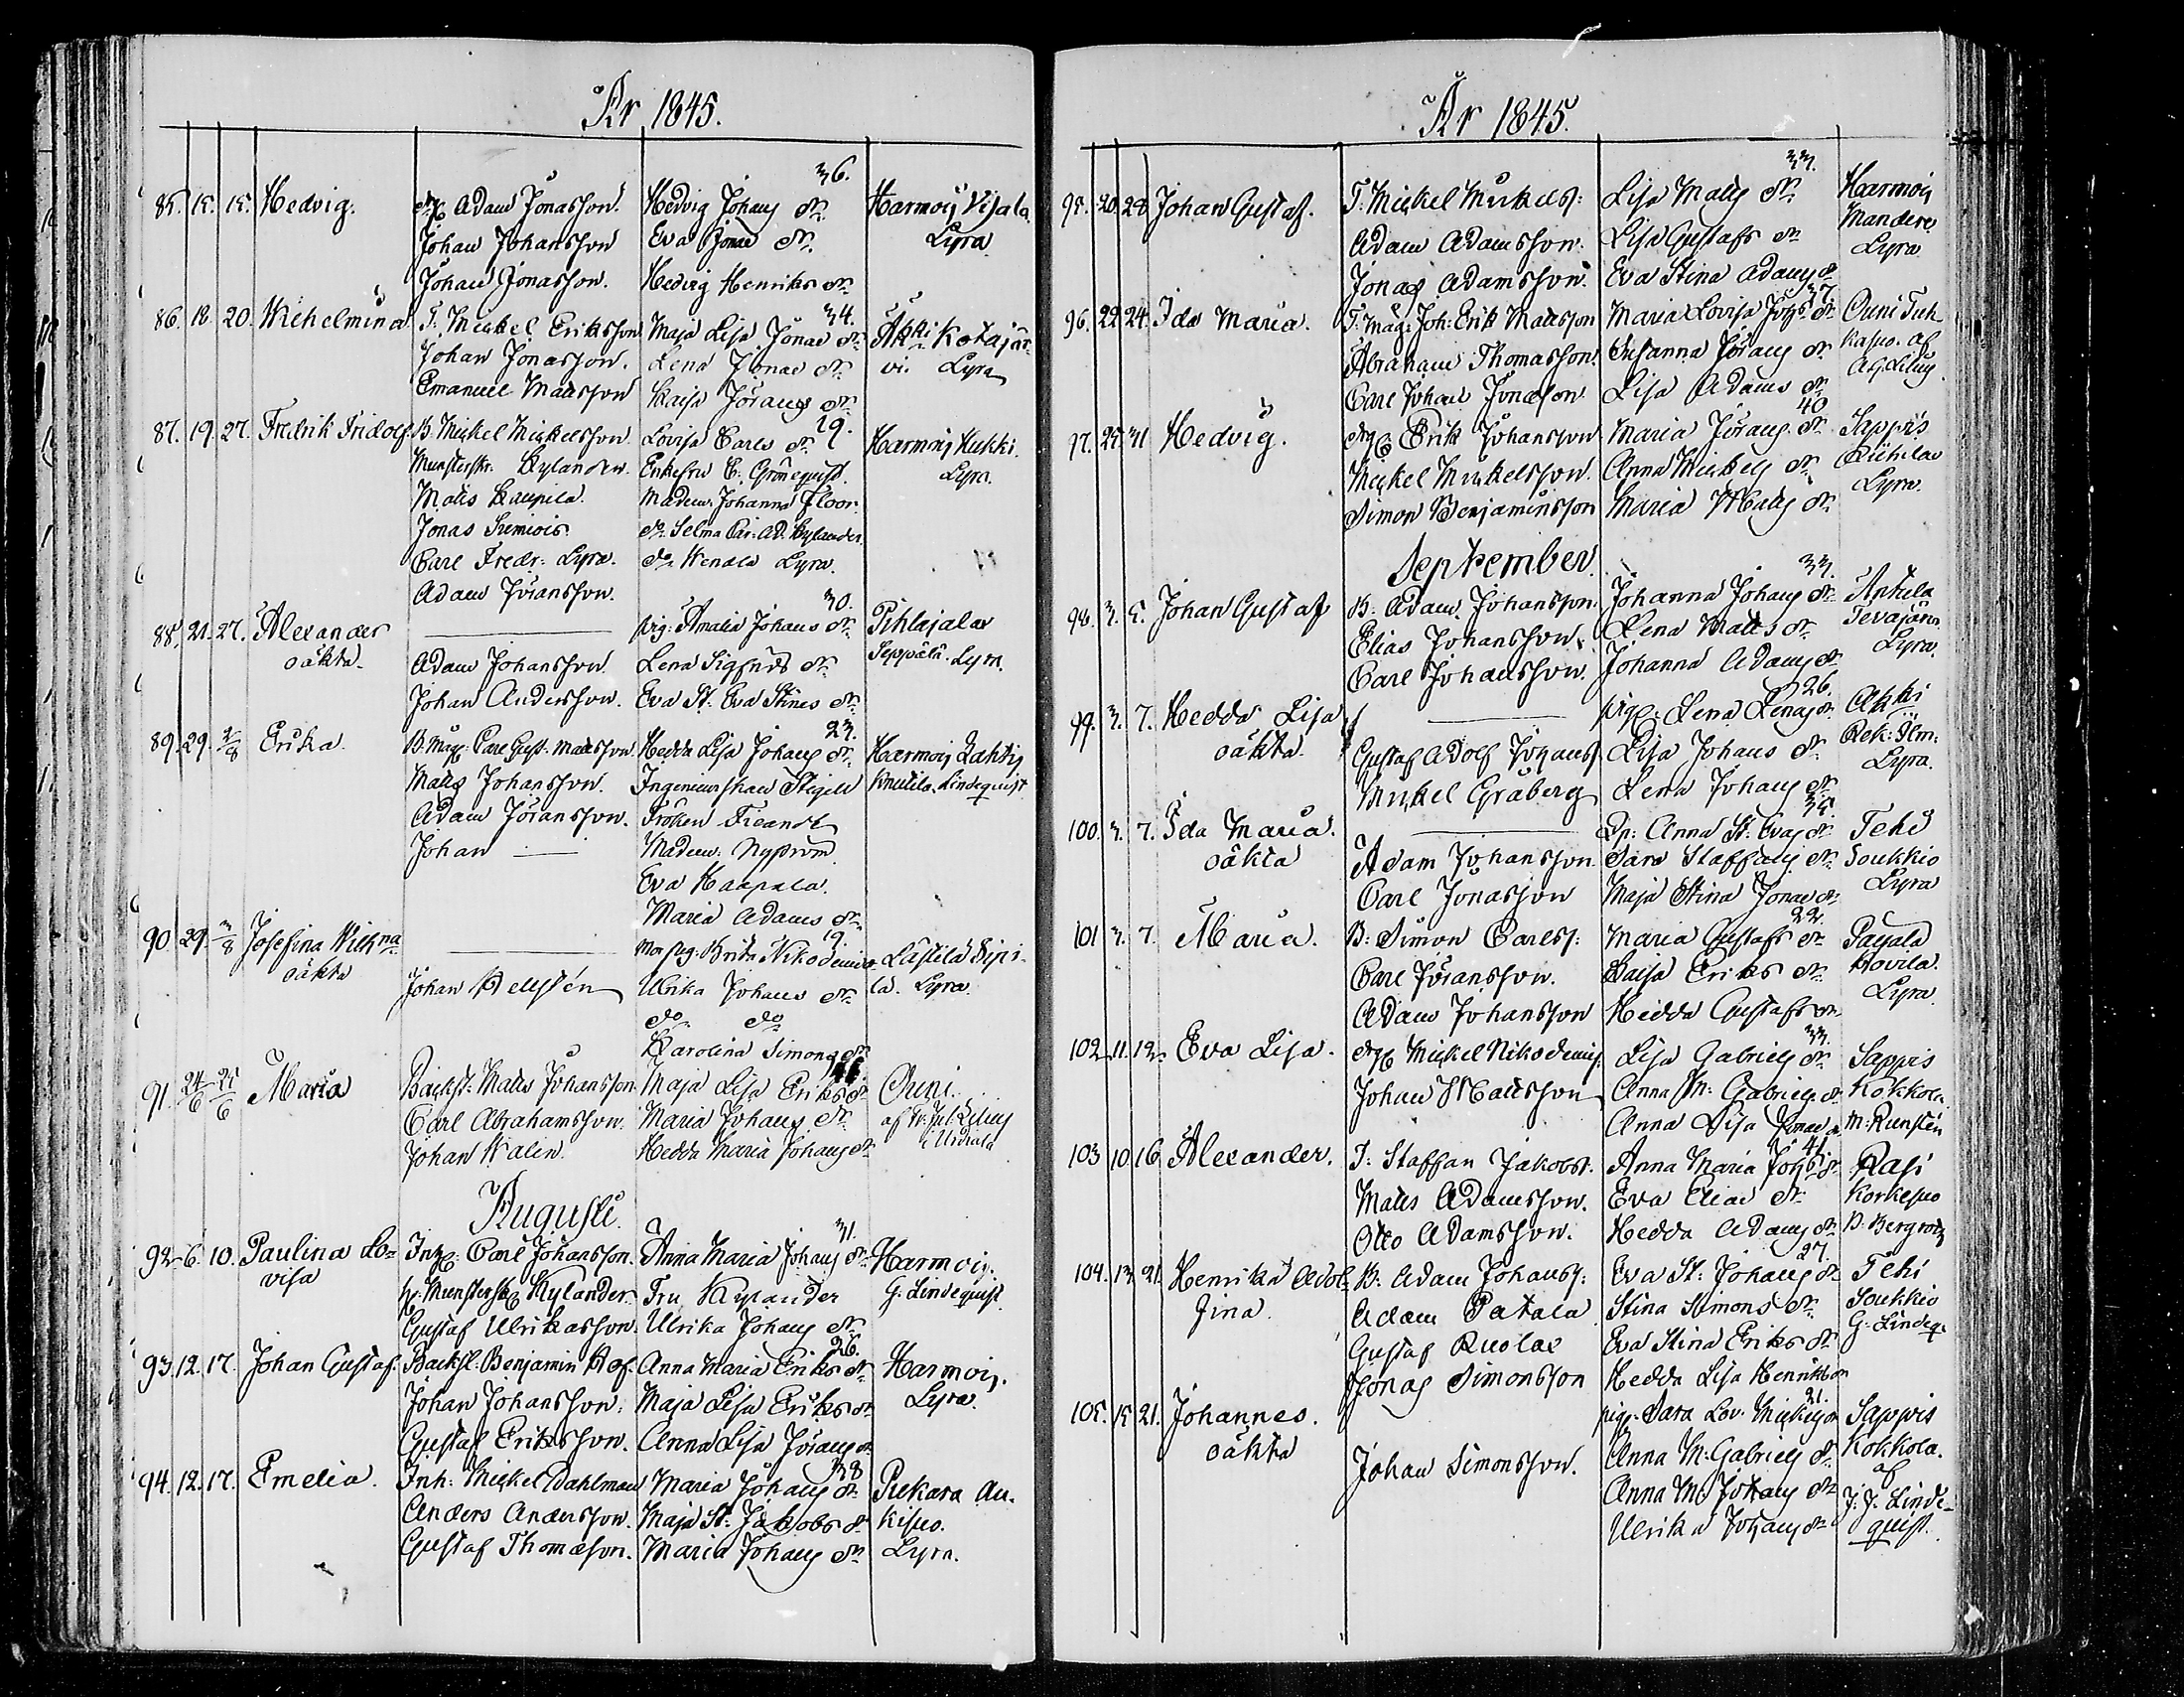 År 1845.
36.
85. 15. 15. Hedvig. Adam Jonasson. Hedvig Johans dr. Harmois Vijala.
Johan Johansson Eva Jonae dr. Lyra
Johan Jonasson. Hedvig Henriks dr.
34.
86. 18. 20. Wilhelmina T. Mickel Eriksson Maja Lisa Jonae dr. Akki Kotajär-
Johan Jonasson. Lena Jonae dr. vi. Lyra
Emanuel Matsson Caisa Jörans dr.
29.
87. 19. 27. Fredrik Fridolf. B. Mickel Mickelsson. Lovisa Carls dr. Harmois Hukki.
Munsterskr. Kylander. Enkefru C. Grönequist. Lyra.
Matts Kaupila. Madem. Johanna Floor.
Jonas do Selma Car. Ad. Kylander.
Carl Fredr. Lyra. do Wendla Lyra.
Adam Jöransson.
30.
88. 21. 27. Alexander ——— pig. Amalia Johans dr. Pihlajalax
oäkta. Adam Johansson. Lena Sigfrids dr. Seppälä. Lyra.
Johan Andersson. Eva St. Eva Stinas dr.
23.
89. 29. 2/8 Erika. B. måg. Carl Gust. Matsson Hedda Lisa Johans dr. Harmois Lahtis
Matts Johansson. Ingenieurskan Stigell Knutila. Lindequist
Adam Jöransson. Fröken Freandt
Johan — Madem. Nyström
Eva Haapala.
Maria Adams dr.
19.
90. 29. 3/8 Josefina Wilhna ——— pig. Brita Nikodemi dr. Lästilä Sipi-
oäkta Johan Helsén Ulrika Johans dr. lä. Lyra.
do do
Karolina Simons dr.
91. 24/6 25/6 Maria Backst. Matts Johansson Maja Lisa Eriks dr. Ouni.
Carl Abrahamsson. Maria Johans dr. af
Johan Walin. Hedda Maria Johans dr. i Urdiala
Augusti.
31.
92. 6. 10. Paulina Lo- Inh. Carl Johansson. Anna Maria Johans dr. Harmois.
visa Munstersk. Kylander. Fru Kylander G. Lindequist
Gustaf Ulrikasson. Ulrika Johans dr.
26.
93. 12. 17. Johan Gustaf. Backst. Benjamin Hof. Anna Maria Eriks dr. Harmois.
Johan Johansson. Maja Lisa Eriks dr. Lyra.
Gustaf Eriksson. Anna Lisa Jörans dr.
38
94. 12. 17. Emelia. Inh. Mickel Dahlman Maria Johans dr. Pukara Au-
Anders Andersson. Maja St. Jakobs dr. kisuo.
Gustaf Thomasson. Maria Johans dr. Lyra.
År 1845.
33.
95. 20. 28 Johan Gustaf. T. Mickel Mickelss. Lisa Matts dr. Harmois
Adam Adamsson. Lisa Gustafs dr. Mandere
Jonas Adamsson. Eva Stina Adams dr. Lyra
37
96. 22. 24. Ida Maria. T. måg. Joh. Erik Matsson Maria Lovisa Johs dr. Ouni Tuh-
Abraham Thomasson. Susanna Jörans dr. kasuo. af
Carl Johan Jonasson. Lisa Adams dr.
40
97. 25. 31 Hedvig. Erik Johansson Maria Jörans dr. Sappis
Mickel Mickelsson. Anna Mickels dr. Riihilax
Simon Benjaminsson Maria Matts dr. Lyra.
September.
33.
98. 3. 5. Johan Gustaf B. Adam Johansson. Johanna Johans dr. Anttila
Elias Johansson. Lena Matts dr. Tevajärvi
Carl Johansson. Johanna Adams dr. Lyra.
26.
99. 3. 7. Hedda Lisa ——— pig. Lena Lenas dr. Akki
oäkta. Gustaf Adolf Johanss. Lisa Johans dr. Rek. Ilm.
Mickel Gråberg Lena Johans dr. Lyra.
35.
100. 3. 7. Ida Maria. ——— Anna St. Evas dr. Tehi
oäkta Adam Johansson Sara Staffans dr. Soukkio
Carl Jonasson Maja Stina Jonae dr. Lyra
22.
101 3. 7. Maria. B. Simon Carlss. Maria Gustafs dr. Pajala
Carl Jöransson. Caisa Eriks dr. Hovila.
Adam Johansson Hedda Gustafs dr. Lyra.
33.
102. 11. 12. Eva Lisa. Mickel Nikodemis. Lisa Gabriels dr. Sappis
Johan Matsson Anna M. Gabriels dr. Kokkola.
Anna Lisa Jonae dr. M. Runstén
41.
103 10 16. Alexander. T. Staffan Jakobss. Anna Maria Johs dr. Rasi
Matts Adamsson. Eva Eliae dr. Korkesuo
Otto Adamsson. Hedda Adams dr. Bergroth
27.
104. 13. 21. Henrika Adol- B. Adam Johanss. Eva St. Johans dr. Tehi
fina. Adam Patala Stina Simons dr. Soukkio
Gustaf Ruolax Eva Stina Eriks dr. G. Lindeq.
Jonas Simonsson Hedda Lisa Henriks dr
21.
105. 15. 21. Johannes. pig. Sara Lov. Mickels dr Sappis
oäkta Johan Simonsson. Anna M. Gabriels dr. Kokkola.
Anna M. Johans dr. af
Ulrika Johans dr. J. J. Linde-
quist.